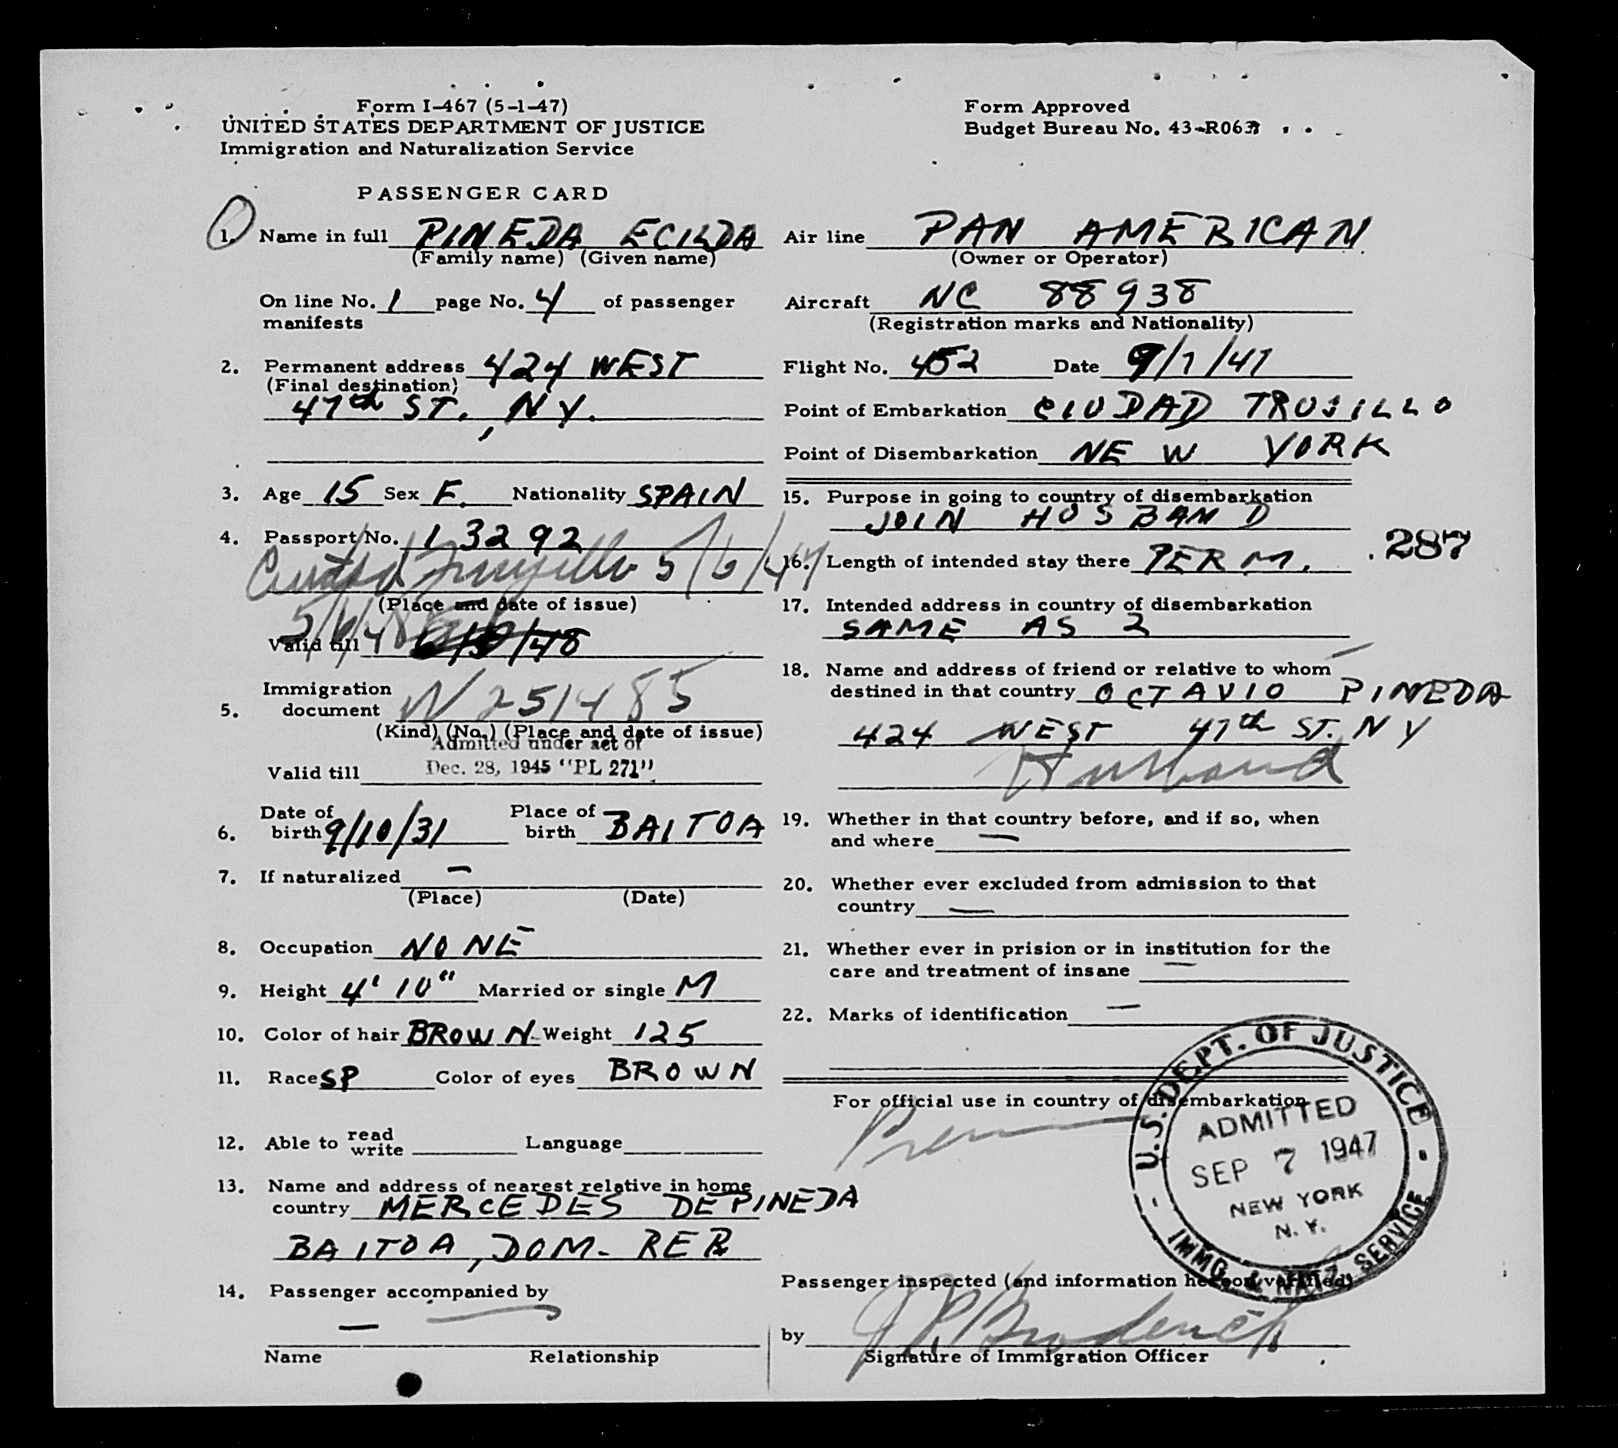 Form I-467 (5-1-47)
UNITED STATES DEPARTMENT OF JUSTICE
Immigration and Naturalization Service
Form Approved
Budget Bureau No. 43-R063
PASSENGER CARD
1. Name in full PINEDA ECILDA
(Family name) (Given name)
On line No. 1 page No. 4 of passenger
manifests
2. Permanent address 424 WEST
(Final destination)
47th ST., NY.
3. Age 15 Sex F. Nationality SPAIN
4. Passport No. 13292
Ciudad Trujillo 5/6/47
(Place and date of issue)
5/6/48
Valid till
Immigration
5. document N 251485
(Kind) (No.) (Place and date of issue)
Admitted under act of
Valid till Dec. 28, 1945 "PL 271"
Date of Place of
6. birth 9/10/31 birth BAITOA
7. If naturalized —
(Place) (Date)
8. Occupation NONE
9. Height 4' 10" Married or single M
10. Color of hair BROWN Weight 125
11. Race SP Color of eyes BROWN
12. Able to read write Language
13. Name and address of nearest relative in home
country MERCEDES DEPINEDA
BAITOA, DOM. REP.
14. Passenger accompanied by
—
Name Relationship
Air line PAN AMERICAN
(Owner or Operator)
Aircraft NC 88938
(Registration marks and Nationality)
Flight No. 452 Date 9/7/47
Point of Embarkation CIUDAD TRUJILLO
Point of Disembarkation NEW YORK
15. Purpose in going to country of disembarkation
JOIN HUSBAND
287
16. Length of intended stay there PERM.
17. Intended address in country of disembarkation
SAME AS 2
18. Name and address of friend or relative to whom
destined in that country OCTAVIO PINEDA
424 WEST 47th ST. NY
Husband
19. Whether in that country before, and if so, when
and where —
20. Whether ever excluded from admission to that
country —
21. Whether ever in prision or in institution for the
care and treatment of insane —
22. Marks of identification —
For official use in country of disembarkation
U.S. DEPT. OF JUSTICE
ADMITTED
SEP 7 1947
NEW YORK
N. Y.
IMMG. & NATZ. SERVICE
Passenger inspected (and information hereon verified)
by
Signature of Immigration Officer